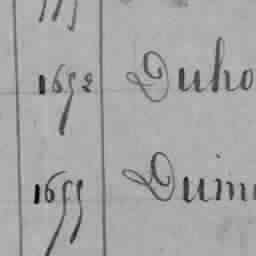 1652 Duho
1655 Duim